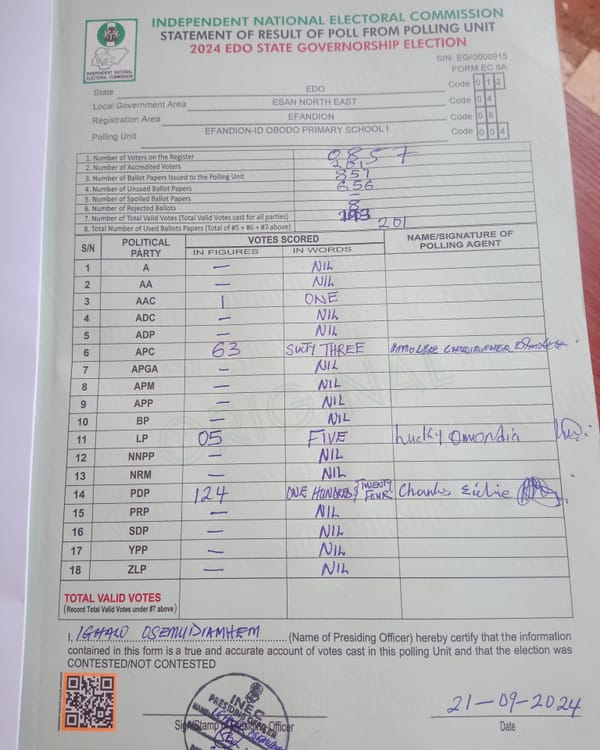 INDEPENDENT NATIONAL ELECTORAL COMMISSION
STATEMENT OF RESULT OF POLL FROM POLLING UNIT
2024 EDO STATE GOVERNORSHIP ELECTION
INEC
INDEPENDENT NATIONAL ELECTORAL COMMISSION
S/N: EG/0000915
FORM EC 8A
State EDO Code 0 1 2
Local Government Area ESAN NORTH EAST Code 0 4
Registration Area EFANDION Code 0 8
Polling Unit EFANDION-ID OBODO PRIMARY SCHOOL I Code 0 0 4
1. Number of Voters on the Register 0857
2. Number of Accredited Voters 201
3. Number of Ballot Papers Issued to the Polling Unit 857
4. Number of Unused Ballot Papers 656
5. Number of Spoiled Ballot Papers –
6. Number of Rejected Ballots 8
7. Number of Total Valid Votes (Total Valid Votes cast for all parties) 193
8. Total Number of Used Ballots Papers (Total of #5 + #6 + #7 above) 201
S/N POLITICAL PARTY VOTES SCORED NAME/SIGNATURE OF POLLING AGENT
IN FIGURES IN WORDS
1 A — NIL
2 AA — NIL
3 AAC 1 ONE
4 ADC — NIL
5 ADP — NIL
6 APC 63 SIXTY THREE
7 APGA — NIL
8 APM — NIL
9 APP — NIL
10 BP — NIL
11 LP 05 FIVE Lucky Omondia
12 NNPP — NIL
13 NRM — NIL
14 PDP 124 ONE HUNDRED & TWENTY FOUR Charles
15 PRP — NIL
16 SDP — NIL
17 YPP — NIL
18 ZLP — NIL
ORIGINAL
TOTAL VALID VOTES
(Record Total Valid Votes under #7 above)
I, IGHALO OSEMUDIAMHEM (Name of Presiding Officer) hereby certify that the information
contained in this form is a true and accurate account of votes cast in this polling Unit and that the election was
CONTESTED/NOT CONTESTED
INEC
PRESIDING OFFICER
NAME
21-09-2024
Sign/Stamp of Presiding Officer Date